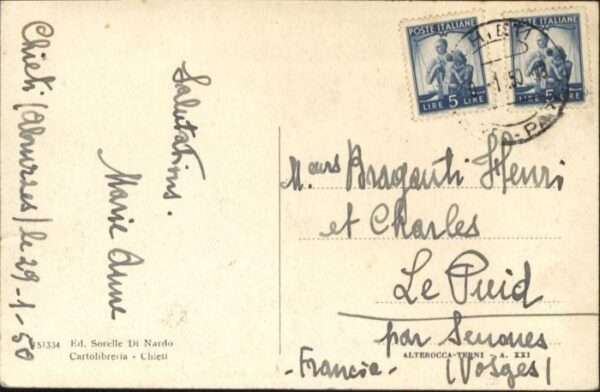 Chieti (Abruzzes) le 29-1-50
Salutations.
Marie Anne
51334 Ed. Sorelle Di Nardo
Cartolibreria - Chieti
POSTE ITALIANE
LIRE 5 LIRE
POSTE ITALIANE
LIRE 5 LIRE
Meurs Braganti Henri
et Charles
Le Puid
par Senones
(Vosges)
- Francia -
ALTEROCCA-TERNI - A. XXI